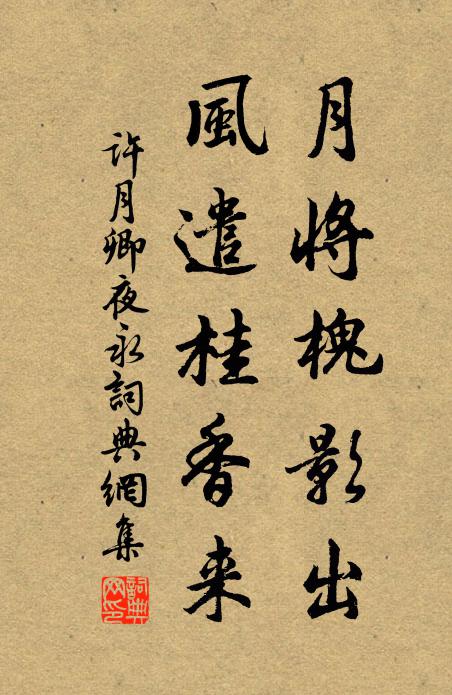 月將槐影出
風遣桂香来
許月卿夜永詞典網集
詞典網印